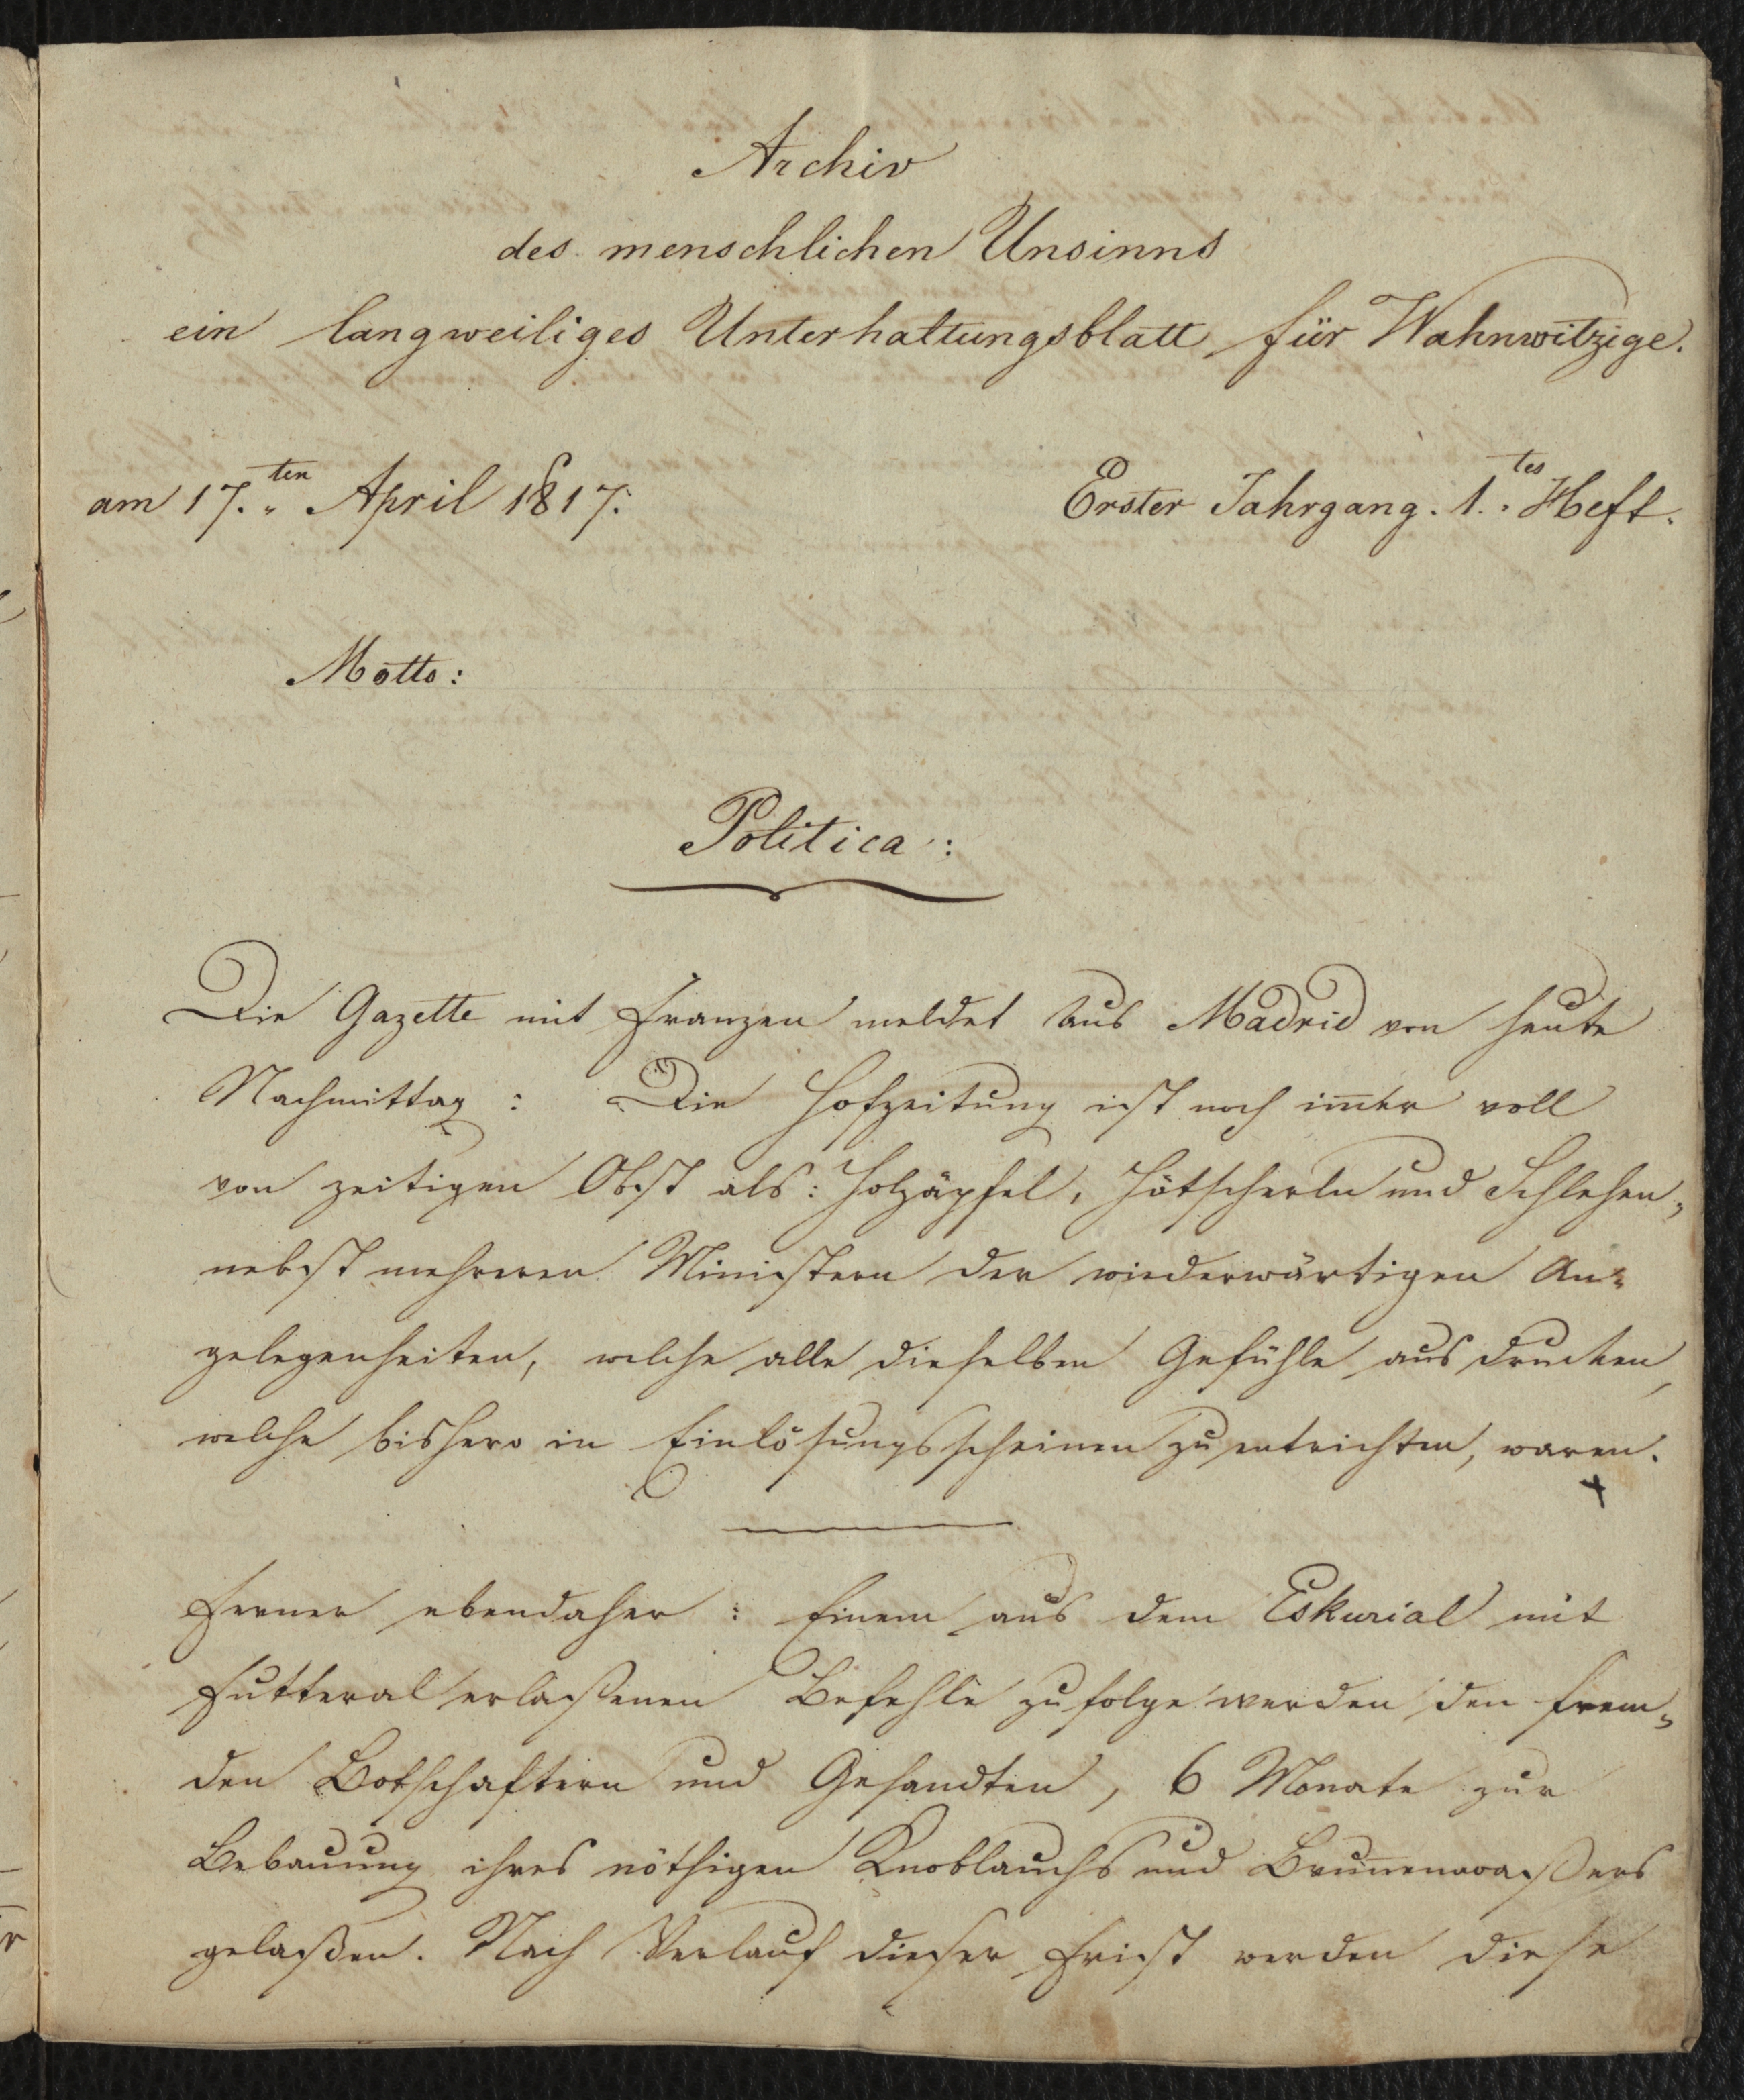 Archiv
des menschlichen Unsinns
ein langweiliges Unterhaltungsblatt für Wahnwitzige.
am 17.ten April 1817. Erster Jahrgang. 1.tes Heft.
Motto:
Politica:
Die Gazette mit Franzen meldet aus Madrid von heute
Nachmittag: Die Hofzeitung ist noch im̄er voll
von zeitigen Obst als: Holzäpfel, Hötscherln und Schlehen,
nebst mehreren Ministern der wiederwärtigen An-
gelegenheiten, welche alle dieselben Gefühle ausdrucken,
welche bishero in Einlösungsscheinen zu entrichten, waren.
Ferner ebendaher: Einem aus dem Eskurial mit
Futteral erlaßenen Befehle zufolge werden den frem-
den Botschaftern und Gesandten, 6 Monate zur
Bebauung ihres nöthigen Knoblauchs und Brun̄enwaßers
gelaßen. Nach Verlauf dieser Frist werden diese